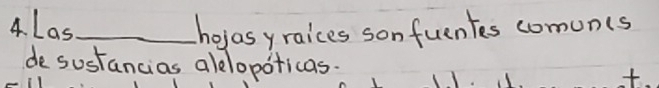 4. Las________hojas y raíces son fuentes comunes
de sustancias alelopóticas.